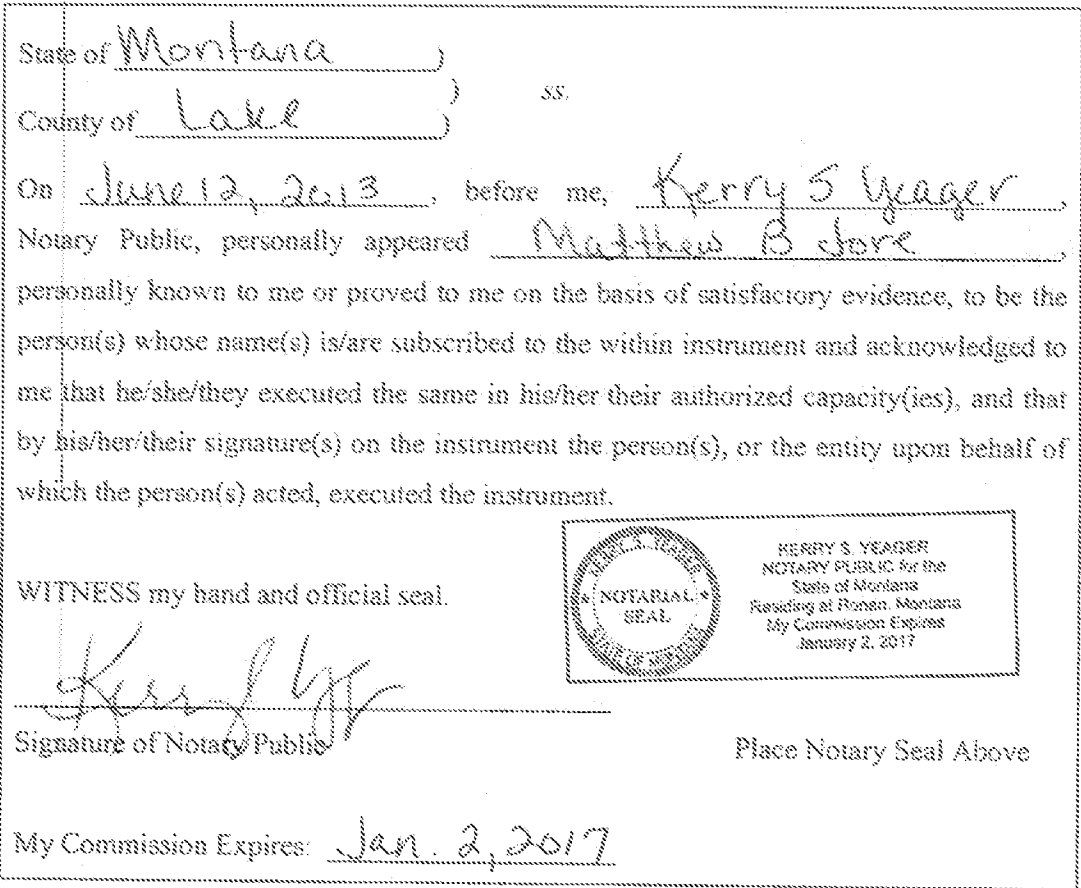 State of Montana )
) ss.
County of Lake )
On June 12, 2013, before me, Kerry S Yeager,
Notary Public, personally appeared Matthew B Jore,
personally known to me or proved to me on the basis of satisfactory evidence, to be the
person(s) whose name(s) is/are subscribed to the within instrument and acknowledged to
me that he/she/they executed the same in his/her their authorized capacity(ies), and that
by his/her/their signature(s) on the instrument the person(s), or the entity upon behalf of
which the person(s) acted, executed the instrument.
KERRY S. YEAGER
NOTARIAL
SEAL
STATE OF MONTANA
KERRY S. YEAGER
NOTARY PUBLIC for the
State of Montana
Residing at Ronan, Montana
My Commission Expires
January 2, 2017
WITNESS my hand and official seal.
Signature of Notary Public
Place Notary Seal Above
My Commission Expires: Jan. 2, 2017